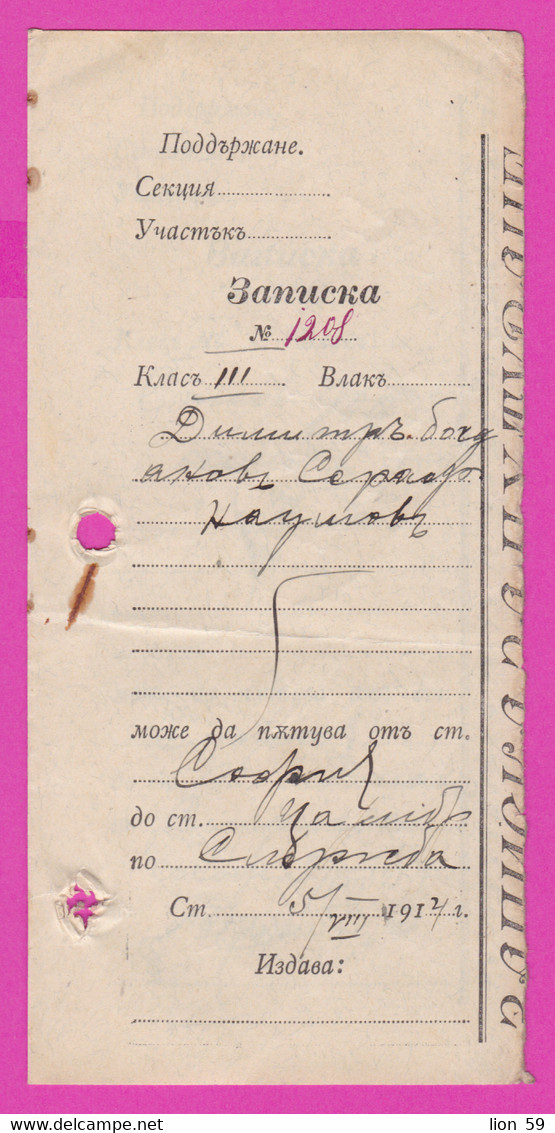 Поддържане.
Секция
Участъкъ
Записка
№ 1208
Класъ III Влакъ
Димитръ
Наумовъ
може да пѫтува отъ ст.
София
до ст.
по Служба
Ст. 5/VIII 1914 г.
Издава:
lion 59